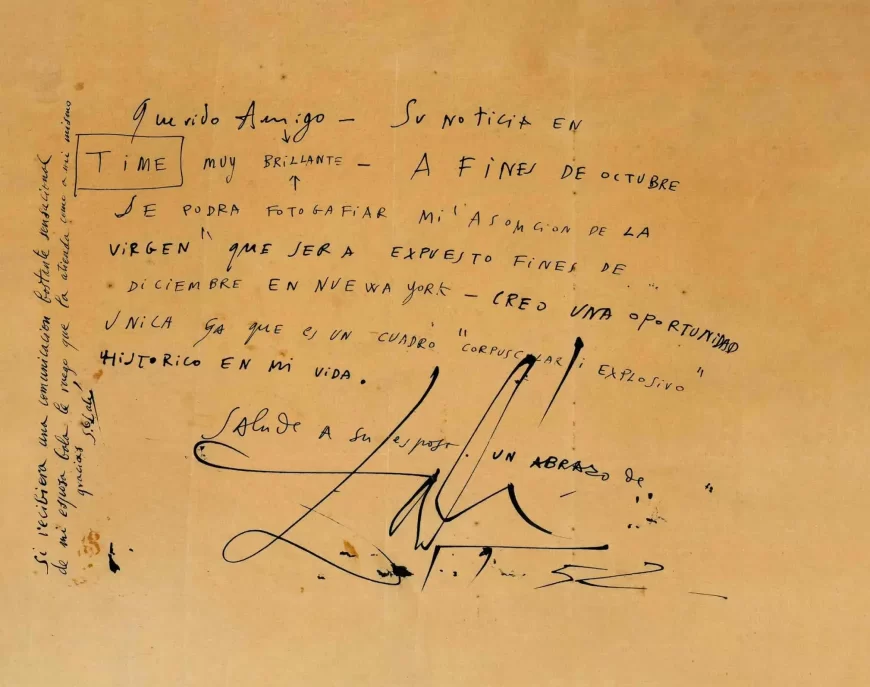 Querido Amigo — Su NOTICIA EN
TiME MUY BRiLLANTE — A FiNES DE OCTUBRE
SE PODRA FOTOGAFiAR Mi "ASOMCION DE LA
ViRGEN" QUE SERA EXPUESTO FINES DE
DiCiEMBRE EN NUEWA YORK — CREO UNA OPORTUNiDAD
UNiCA YA QUE ES UN CUADRO "CORPUSCULAR i EXPLOSiVO"
HISTORICO EN Mi ViDA.
SALude A Su esposa. UN ABRAZO de
Dalí
52
Si recibiera una comunicacion bastante sensacional
de mi esposa Gala le ruego que la atienda como a mi mismo
gracias S. Dalí